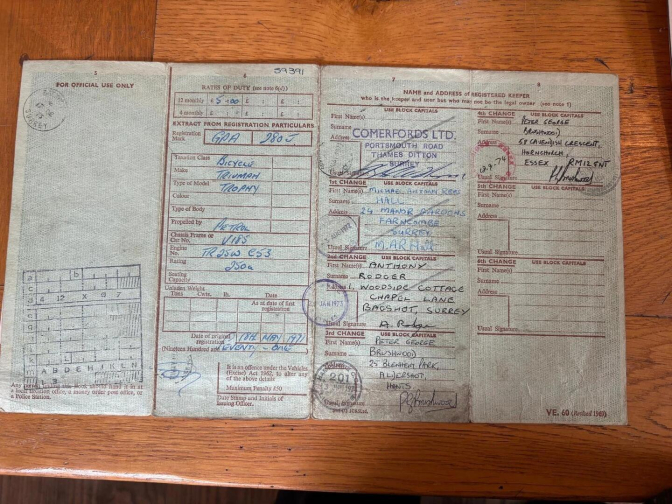 5
FOR OFFICIAL USE ONLY
SURREY
Any person finding this Book should hand it in at
a local taxation office, a money order post office, or
a Police Station.
6
59391
RATES OF DUTY (see note 6(c))
12 monthly £5.00 £ : £ :
4 monthly £ : £ : £ :
EXTRACT FROM REGISTRATION PARTICULARS
Registration
Mark GPA 280J
Taxation Class BICYCLE
Make TRIUMPH
Type of Model TROPHY
Colour
Type of Body
Propelled by PETROL
Chassis Frame or
Car No.
Engine
No. TR25W
Rating
Seating
Capacity
Unladen Weight
Tons Cwts. lb. Date
As at date of first
registration
Date of original
registration 18TH MAY 1971
(Nineteen hundred and SEVENTY - ONE
It is an offence under the Vehicles
(Excise) Act 1962, to alter any
of the above details
Maximum Penalty £50
Date Stamp and Initials of
Issuing Officer.
7
8
NAME and ADDRESS of REGISTERED KEEPER
who is the keeper and user but who may not be the legal owner (see note 1)
USE BLOCK CAPITALS
First Name(s)
Surname
Address
COMERFORDS LTD.
PORTSMOUTH ROAD
THAMES DITTON
SURREY
1st CHANGE USE BLOCK CAPITALS
First Name(s) MICHAEL
Surname HALL
Address 24 MANOR GARDENS
FARNCOMBE
SURREY
Usual Signature
2nd CHANGE USE BLOCK CAPITALS
First Name(s) ANTHONY
Surname RODGER
Address 1, WOODSIDE COTTAGE
CHAPEL LANE
BAGSHOT, SURREY
JAN 1973
Usual Signature
3rd CHANGE USE BLOCK CAPITALS
First Name(s) PETER GEORGE
Surname BRUSHWOOD
25 BLENHEIM PARK,
ALDERSHOT,
HANTS
201
4th CHANGE USE BLOCK CAPITALS
First Name(s) PETER GEORGE
Surname BRUSHWOOD
Address 58 CAVENDISH CRESCENT,
HORNCHURCH,
ESSEX RM12 5NT
Usual Signature
5th CHANGE USE BLOCK CAPITALS
First Name(s)
Surname
Address
Usual Signature
6th CHANGE USE BLOCK CAPITALS
First Name(s)
Surname
Address
Usual Signature
VE. 60 (Revised 1969)